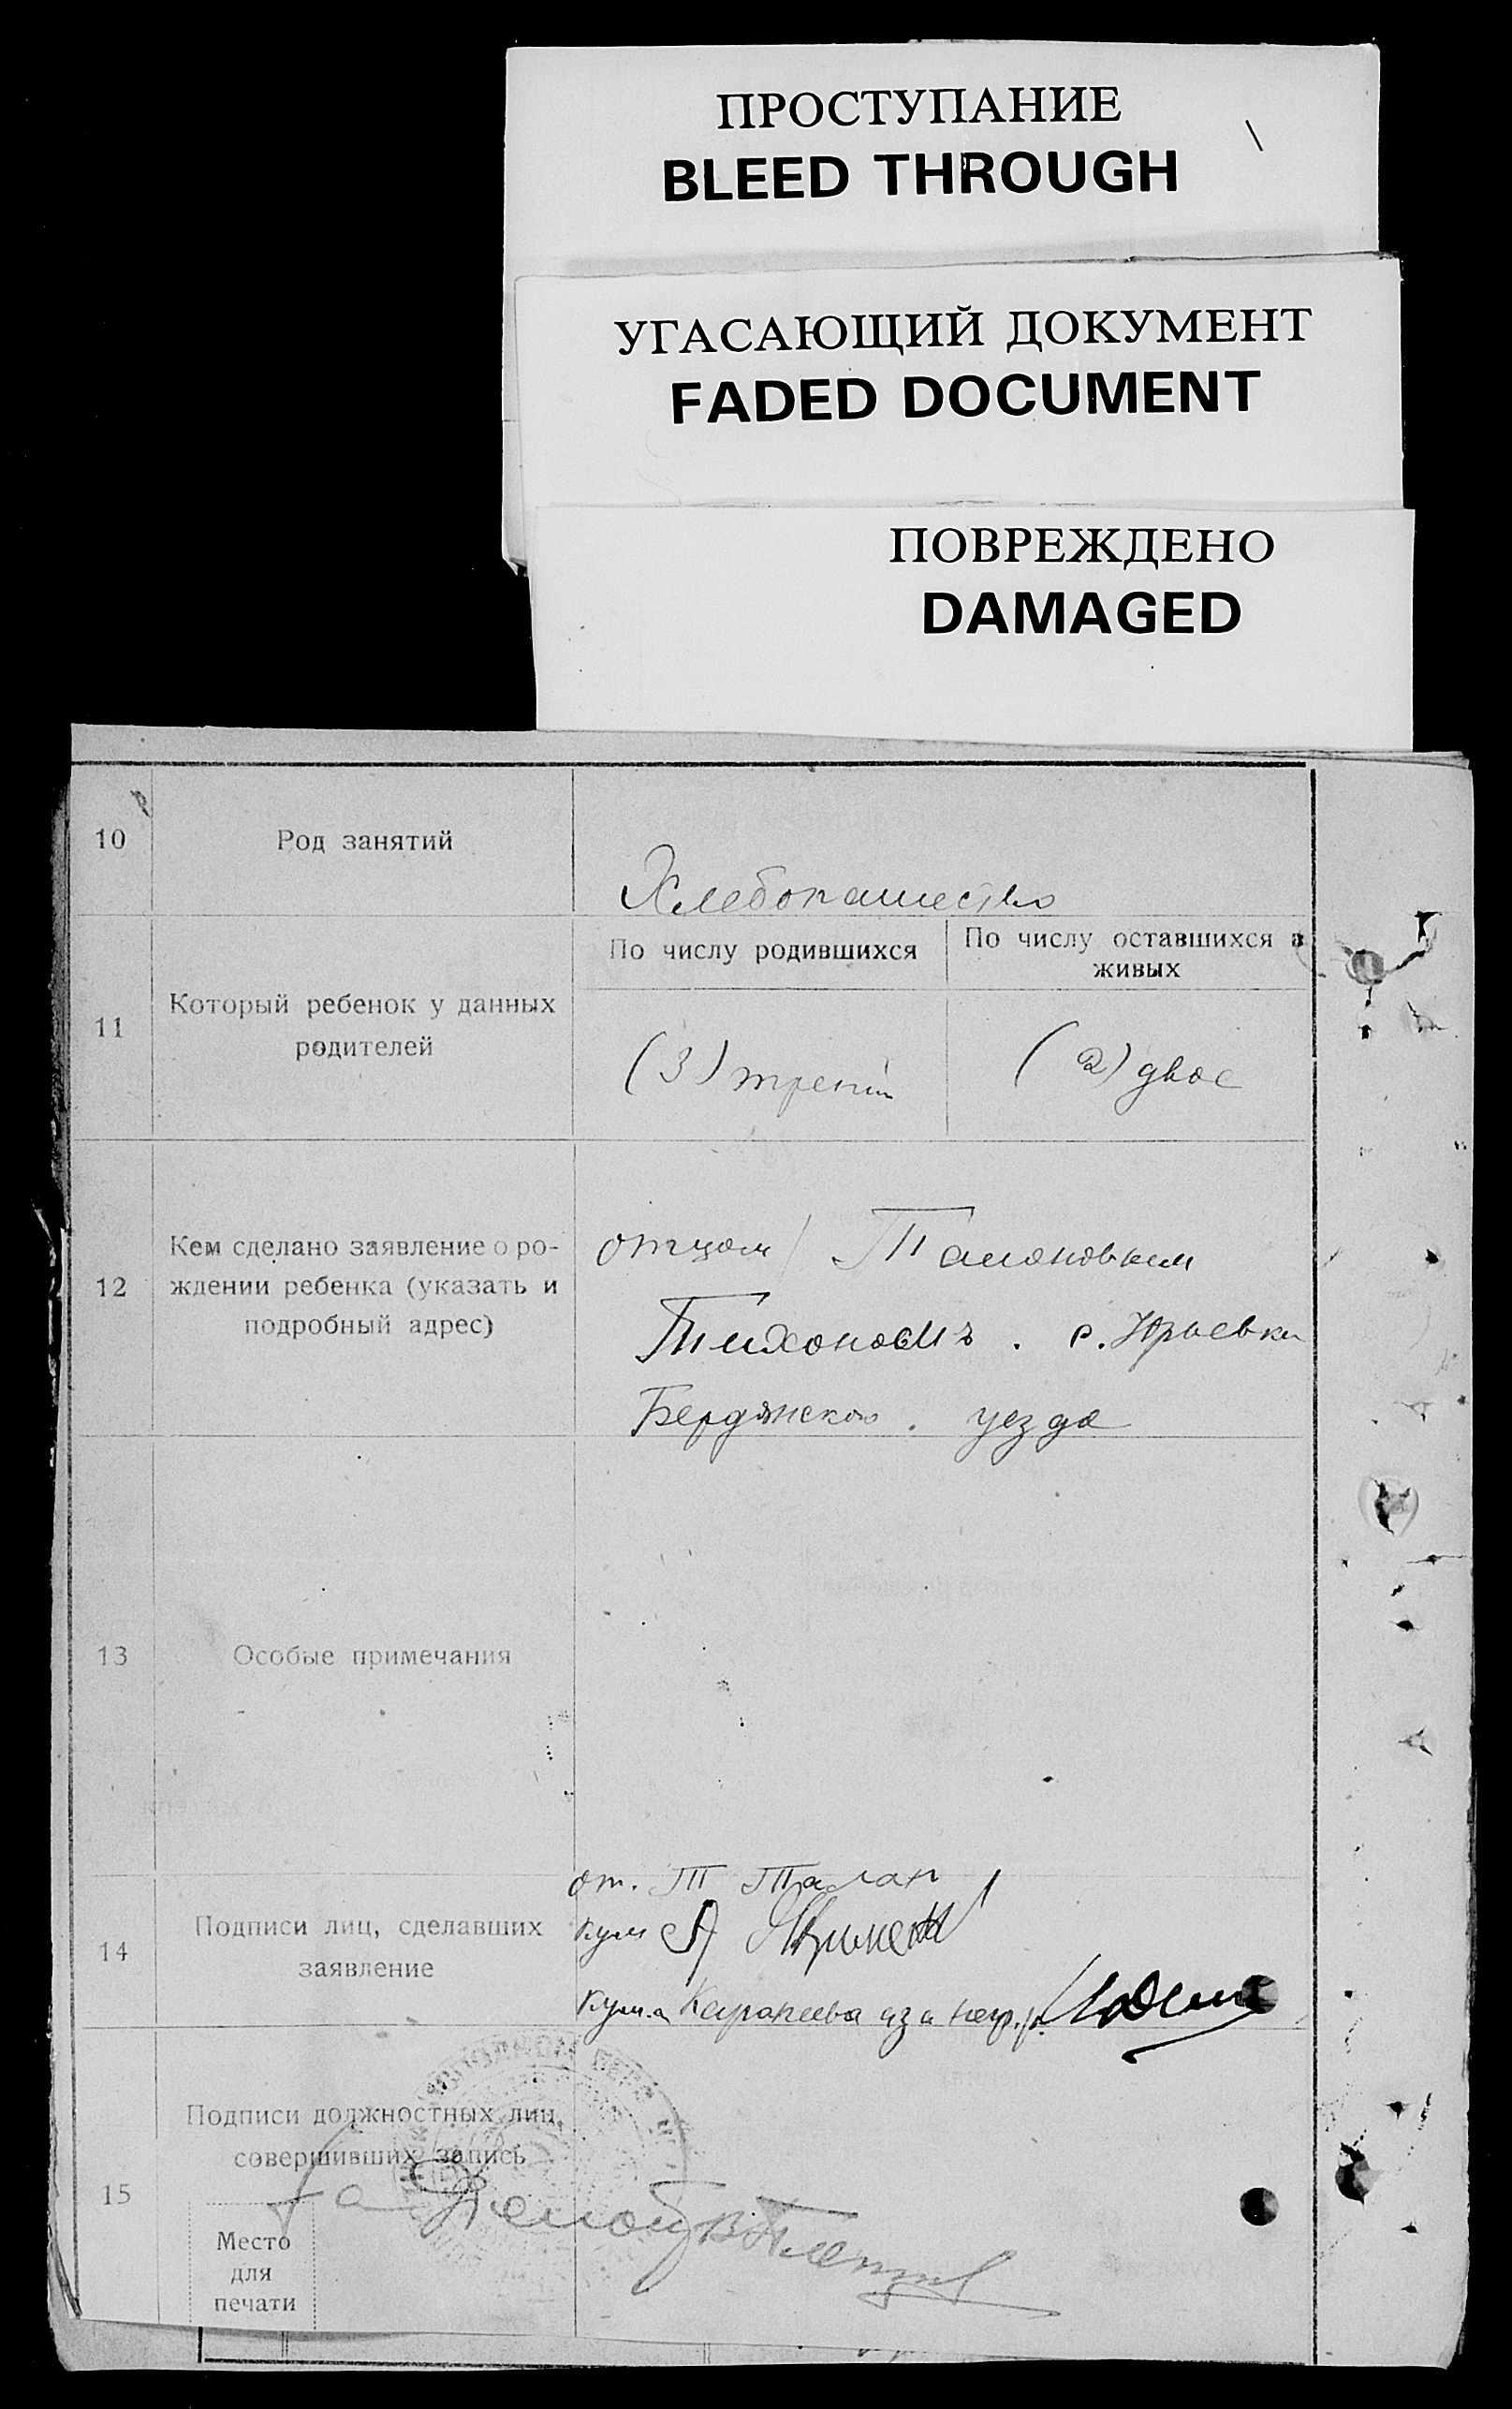 ПРОСТУПАНИЕ
BLEED THROUGH
УГАСАЮЩИЙ ДОКУМЕНТ
FADED DOCUMENT
ПОВРЕЖДЕНО
DAMAGED
10
Род занятий
Хлебопашество
11
Который ребенок у данных
родителей
По числу родившихся
По числу оставшихся в
живых
(3) третий
(2) двое
12
Кем сделано заявление о ро-
ждении ребенка (указать и
подробный адрес)
отцом
Тихоном . с. Юрьевки
Бердянского . уезда
13
Особые примечания
14
Подписи лиц, сделавших
заявление
от. Т Талан
кум А
кума
15
Подписи должностных лиц,
совершивших запись
Место
для
печати